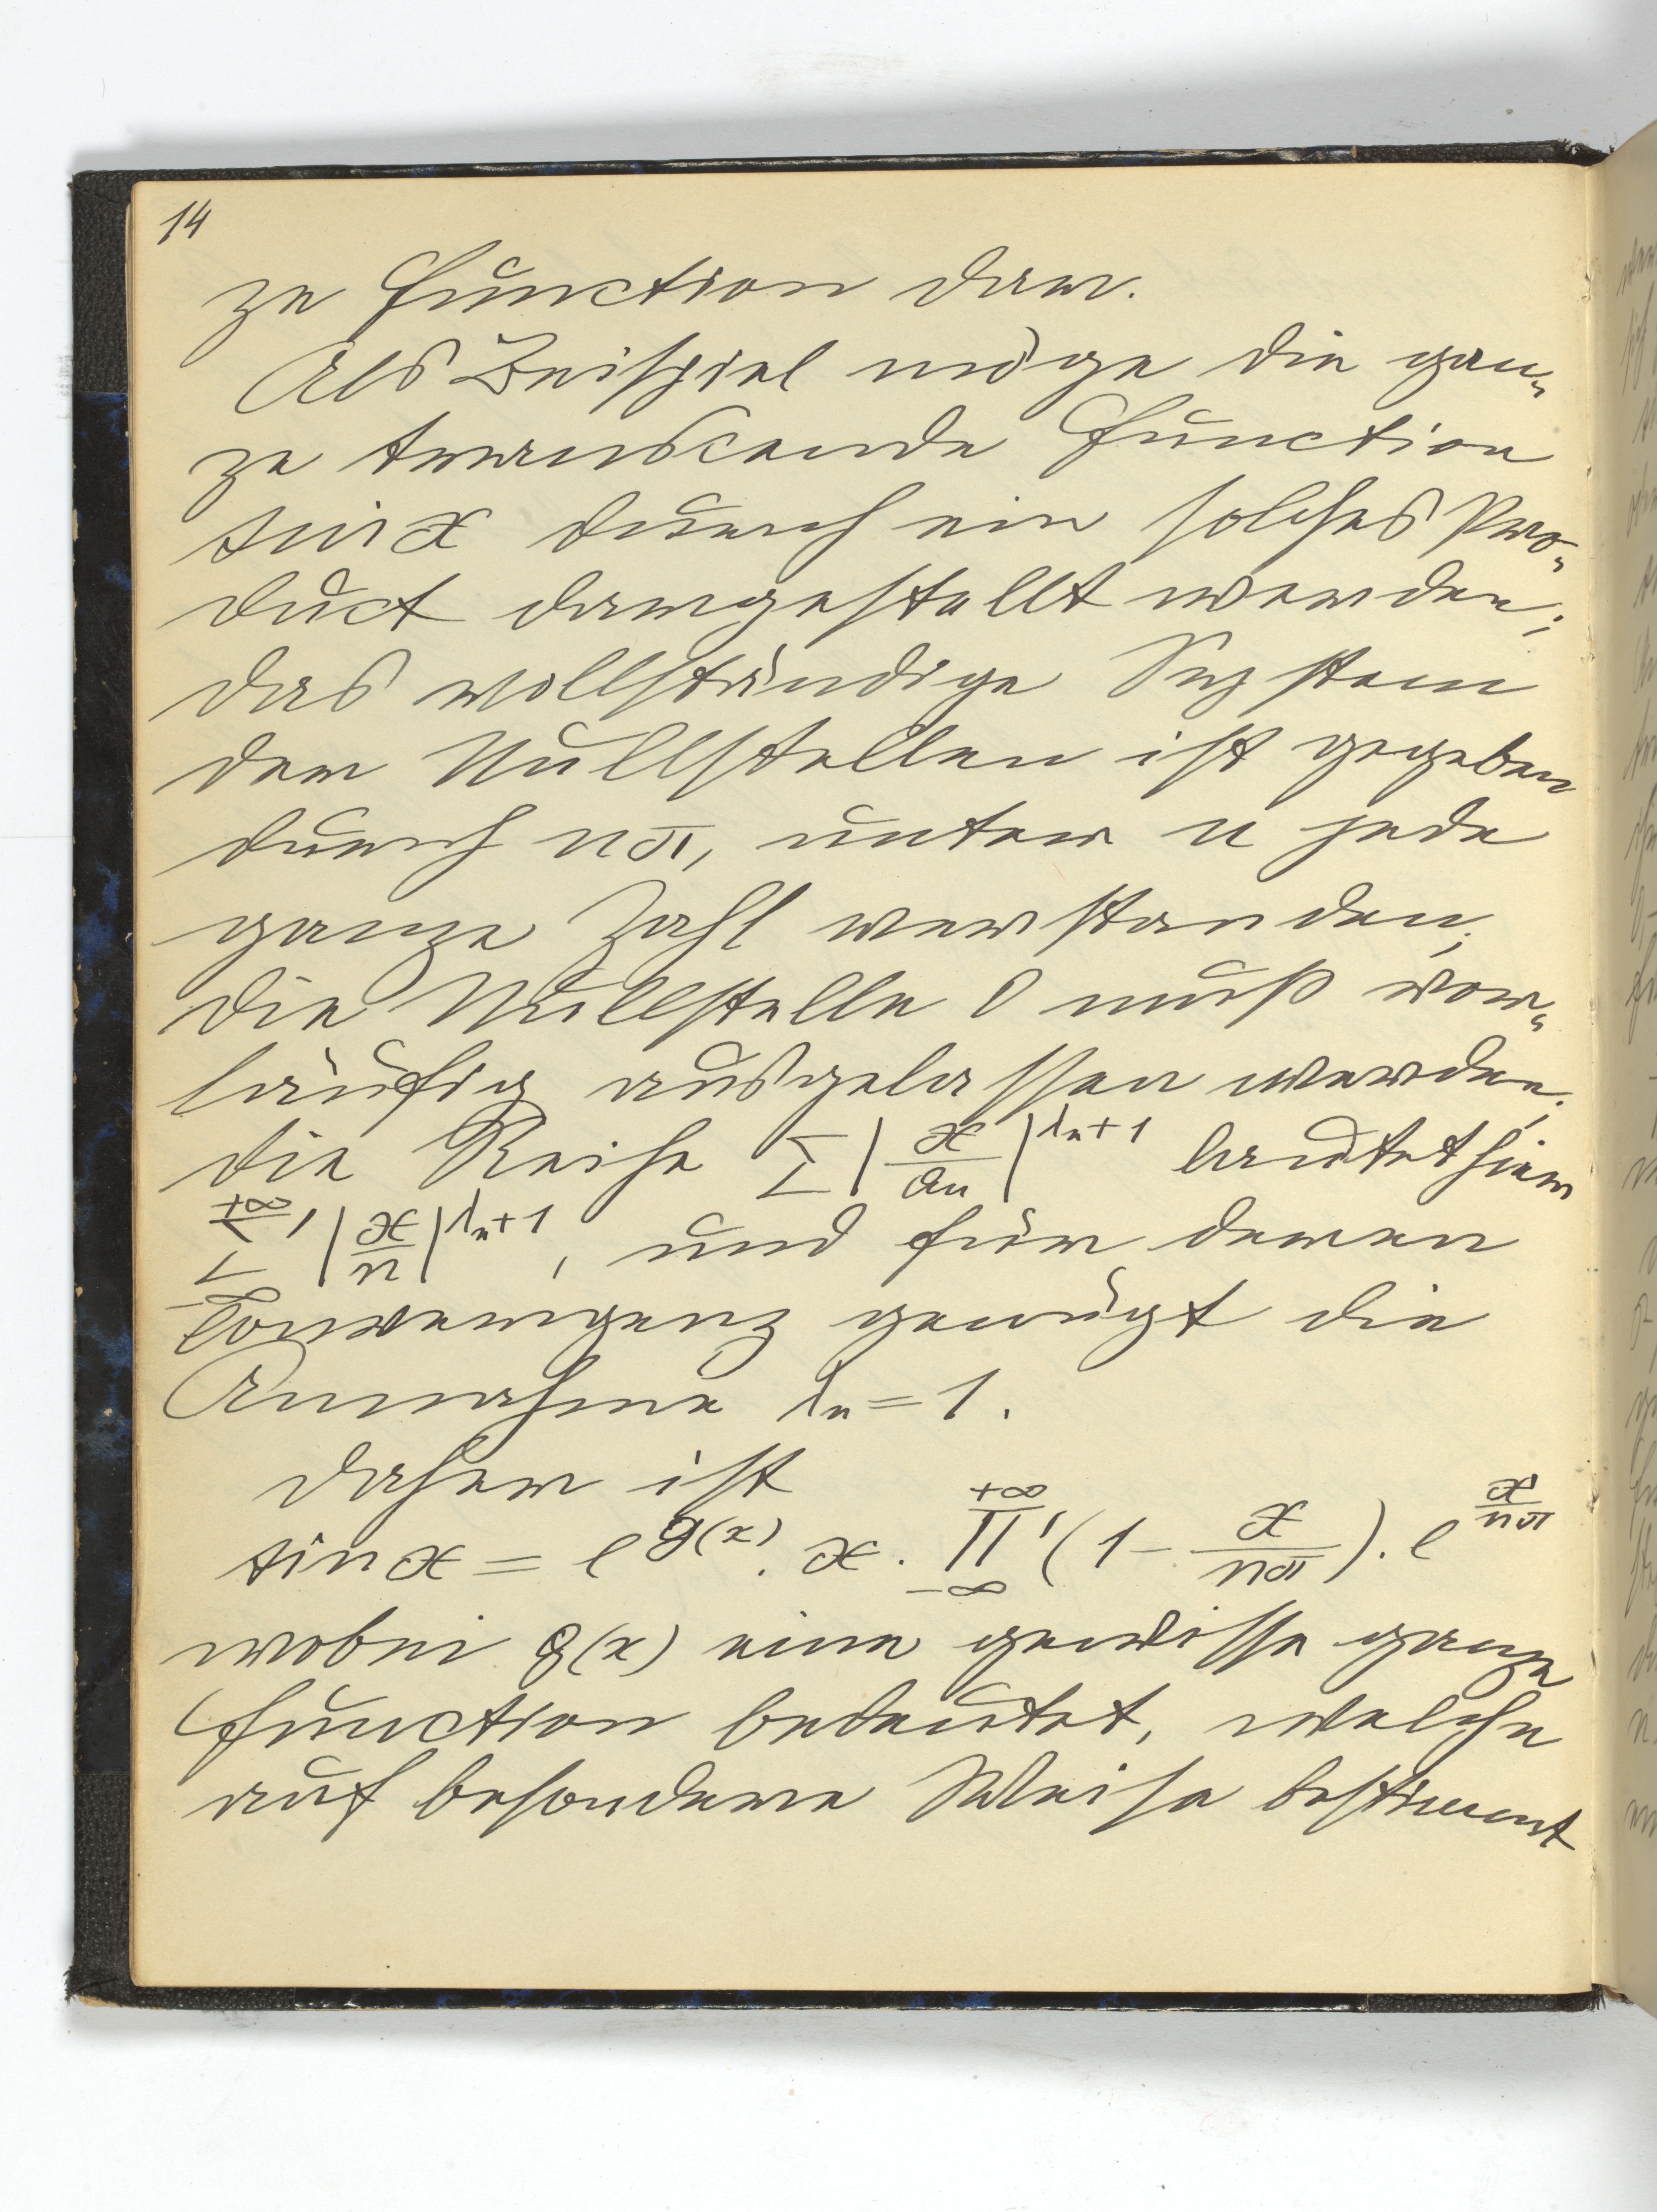 14
ze Function dar.
Als Beispiel möge die gan-
ze transcende Function
sin x durch ein solches Pro-
duct dargestellt werden;
das vollständige System
der Nullstellen ist gegeben
durch nπ, unter n jede
ganze Zahl verstanden;
die Nullstelle 0 muß vor-
läufig ausgelassen werden;
die Reihe Σ |x/aₙ|^(λₙ+1) lautet hier
Σ'_{-∞}^{+∞} |x/n|^(λₙ+1), und für deren
Convergenz genügt die
Annahme λₙ = 1.
Daher ist
sin x = e^{g(x)} . x . Π'_{-∞}^{+∞} (1 - x/nπ) . e^{x/nπ}
wobei g(x) eine gewisse ganze
Function bedeutet, welche
auf besondere Weise bestimmt